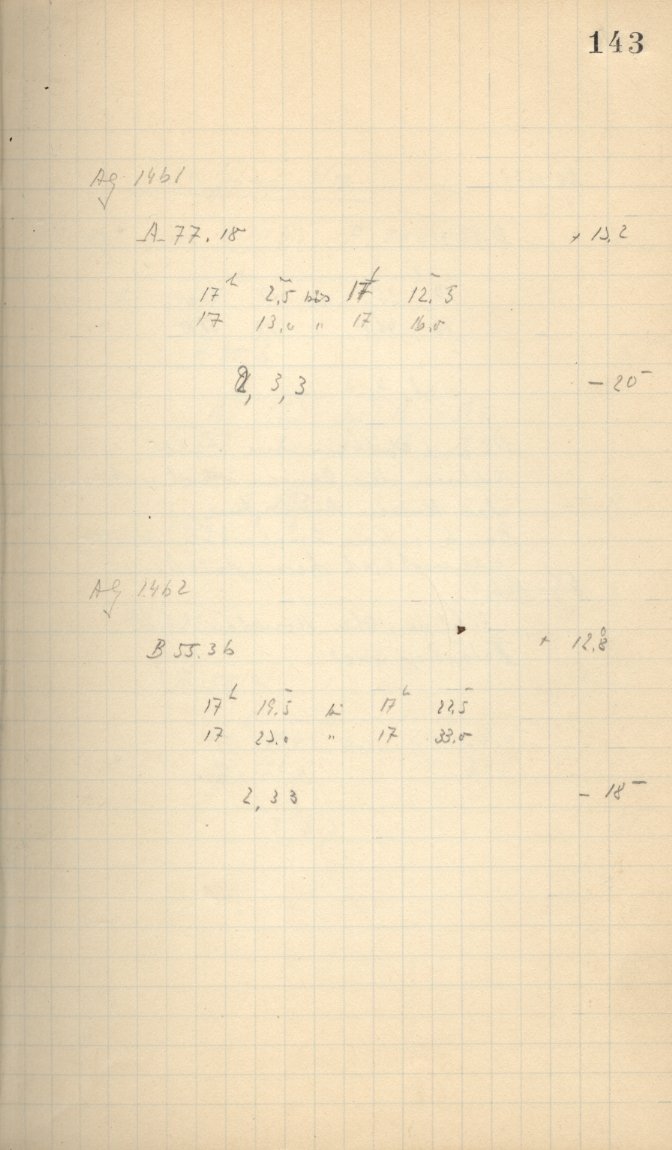 143
AG 1461
A 77.18 + 13,2
17ʰ 2,5 bis 17ʰ 12,3
17 13,0 " 17 16,0
2, 3,3 - 20
AG 1462
B 55.36 + 12,8
17ʰ 19,5 bis 17ʰ 22,5
17 23,0 " 17 33,0
2, 3 3 - 18